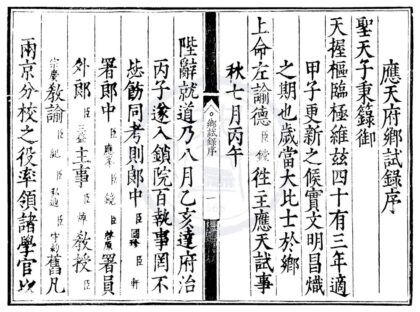 應天府鄉試錄序
聖天子秉籙御
天握樞臨極維茲四十有三年適
甲子更新之候實文明昌熾
之期也歲當大比士於鄉
上命左諭德臣 往主應天試事
秋七月丙午
鄉試錄序
一
陛辭就道乃八月乙亥達府治
丙子遂入鎖院百執事罔不
毖飭同考則郎中臣國 臣軒
署郎中臣應 臣 署員
外郎臣 主事臣 教授臣
宗慶教諭臣 臣 臣 舊凡
兩京分校之役率領諸學官以